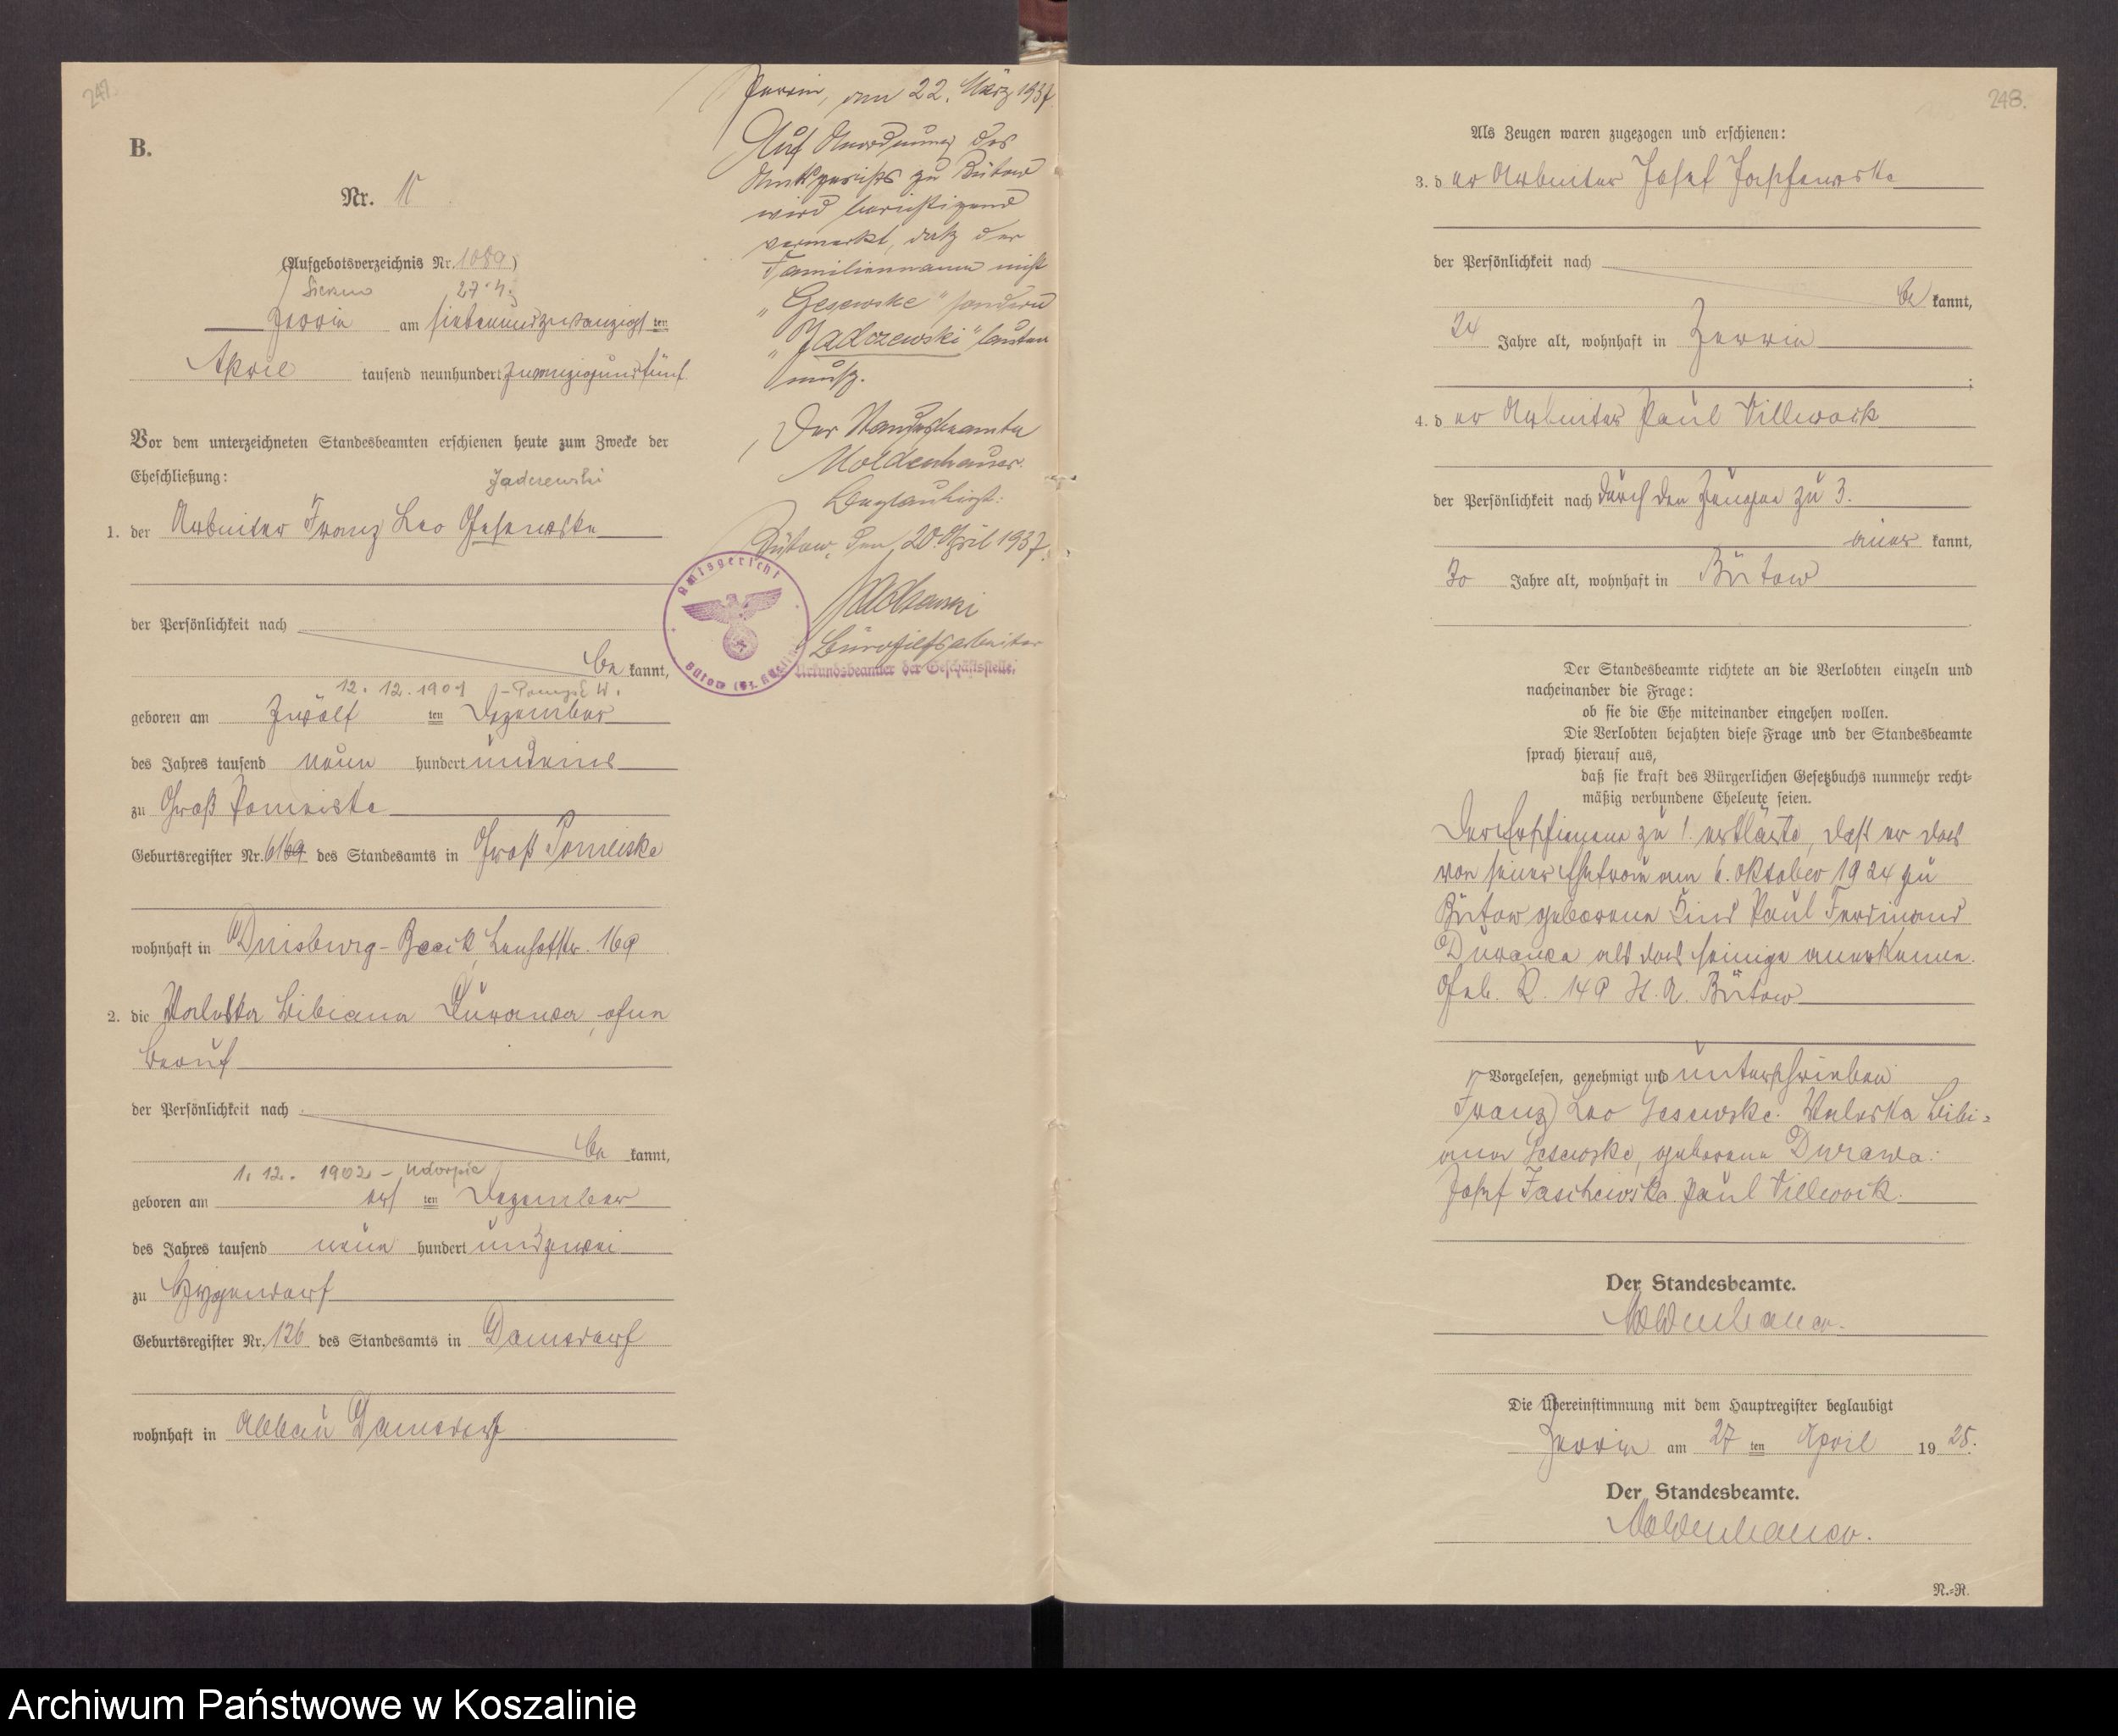 247.
B.
Nr. 11
(Aufgebotsverzeichnis Nr. )
27.4.
Zerrin am siebenundzwanzigsten
April tausend neunhundert zwanzigundfünf
Vor dem unterzeichneten Standesbeamten erschienen heute zum Zwecke der
Eheschließung:
Jadczewski
1. der Arbeiter Franz Leo Gesewske
der Persönlichkeit nach
be kannt,
12. 12. 1901
geboren am zwölf ten Dezember
des Jahres tausend neun hundert undeins
zu Groß Pomeiske
Geburtsregister Nr. des Standesamts in Groß Pomeiske
wohnhaft in Duisburg-Beeck, 169
2. die Valeska Bibiana Durawa, ohne
Beruf
der Persönlichkeit nach
be kannt,
1. 12. 1902 - Udorpie
geboren am ersten Dezember
des Jahres tausend neun hundert undzwei
zu Hygendorf
Geburtsregister Nr. 126 des Standesamts in Damsdorf
wohnhaft in Abbau Damsdorf
Zerrin, den 22. März 1937
Auf Anordnung des
Amtsgerichts zu Bütow
wird berichtigend
vermerkt, daß der
Familienname nicht
„Gesewske" sondern
„Jadczewski" lauten
muß.
Der Standesbeamte
Moldenhauer.
Beglaubigt:
Bütow, den 20. April 1937.
Amtsgericht
Bütow (Bz. Köslin)
Bürohilfsarbeiter
Urkundsbeamter der Geschäftsstelle.
248.
Als Zeugen waren zugezogen und erschienen:
3. der Arbeiter Josef Jaschewske
der Persönlichkeit nach
be kannt,
34 Jahre alt, wohnhaft in Zerrin
;
4. der Arbeiter Paul Villwock
der Persönlichkeit nach durch den Zeugen zu 3.
aner kannt,
30 Jahre alt, wohnhaft in Bütow
Der Standesbeamte richtete an die Verlobten einzeln und
nacheinander die Frage:
ob sie die Ehe miteinander eingehen wollen.
Die Verlobten bejahten diese Frage und der Standesbeamte
sprach hierauf aus,
daß sie kraft des Bürgerlichen Gesetzbuchs nunmehr recht-
mäßig verbundene Eheleute seien.
Der Erschienene zu 1. erklärte, daß er das
von seiner Ehefrau am 6. Oktober 1924 zu
Bütow geborene Kind Paul Ferdinand
Durawa als das seinige anerkenne.
Geb. R. 149 St. A. Bütow
Vorgelesen, genehmigt und unterschrieben
Franz Leo Gesewske. Valeska Bibi-
ana Gesewske, geborene Durawa.
Josef Jaschewske. Paul Villwock.
Der Standesbeamte.
Moldenhauer.
Die Übereinstimmung mit dem Hauptregister beglaubigt
Zerrin am 27 ten April 1925.
Der Standesbeamte.
Moldenhauer.
N.-R.
Archiwum Państwowe w Koszalinie